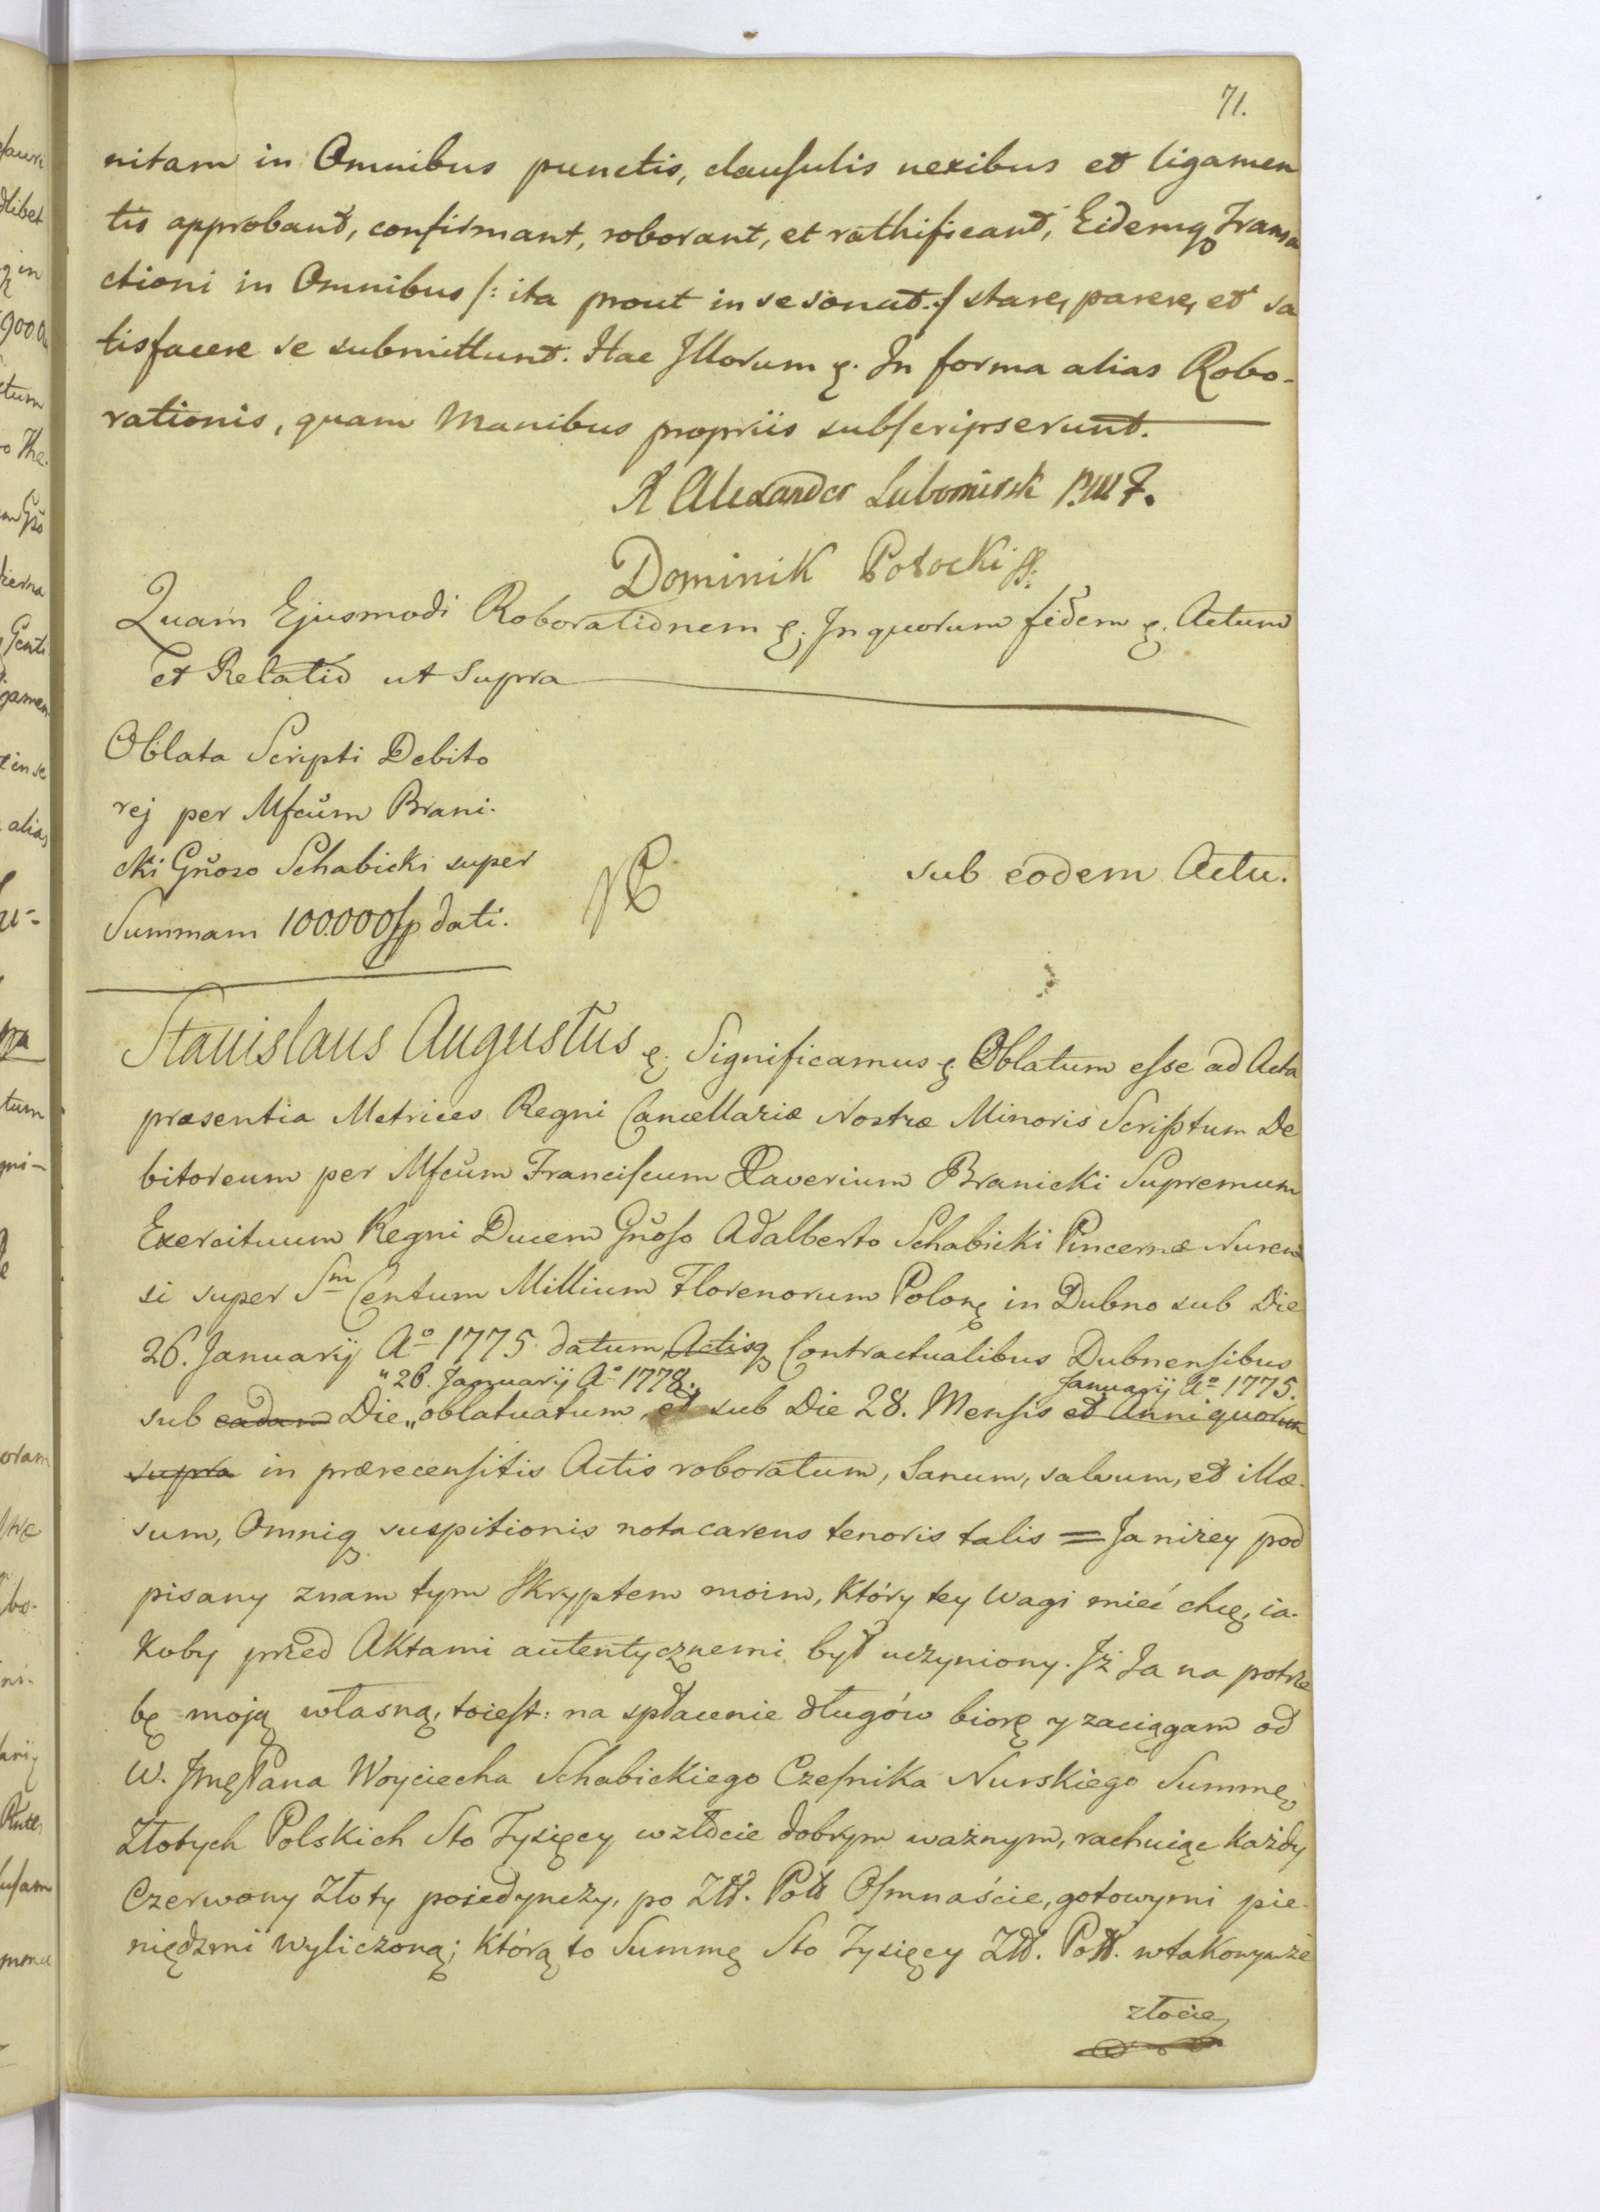 71.
nitam in Omnibus punctis, clausulis nexibus et ligamen
tis approbant, confirmant, roborant, et rathificant, Eidemq Transa
ctioni in Omnibus /: ita prout in se sonat :/ stare, parere, et sa
tisfacere se submittunt. Hac Illorum &. In forma alias Robo-
rationis, quam Manibus propriis subscripserunt.
X Alexander Lubomirsk
Dominik Potocki
Quam Ejusmodi Roborationem &. In quorum fidem &. Actum
et Relatio ut Supra
Oblata Scripti Debito
rej per Mfcum Brani-
cki Gnoso Schabicki super
Summam 100.000 fp dati.
sub eodem Actu.
Stanislaus Augustus &. Significamus &. Oblatum esse ad Acta
præsentia Metrices Regni Cancellariæ Nostræ Minoris Scriptum De
bitoreum per Mfcum Franciscum Xaverium Branicki Supremum
Exercituum Regni Ducem Gnoso Adalberto Schabicki Pincernæ Nuren
si super Sm Centum Millium Florenorum Polonę in Dubno sub Die
26. Januarij Ao 1775 datum Actisq Contractualibus Dubnensibus
" 26. Januarij Ao 1778. Januarij Ao 1775.
sub eadem Die „ oblatuatum, et sub Die 28. Mensis et Anni quorum
supra in prærecensitis Actis roboratum, Sanum, salvum, et illæ-
sum, Omniq suspitionis nota carens tenoris talis = Ja niżey pod
pisany znam tym Skryptem moim, Który tey Wagi mieć chcę, ia-
koby przed Aktami autentycznemi był uczyniony. Jż Ja na potrze
bę moją własną, toiest: na spłacenie długów biorę y zaciągam od
W. Jmę Pana Woyciecha Schabickiego Czesnika Nurskiego Summę
Złotych Polskich Sto Tysięcy w złocie dobrym ważnym, rachuiąc Każdy
Czerwony Złoty poiedynczy, po Złł. Poll Osmnaście, gotowymi pie-
niędzmi wyliczoną; Którą to Summę Sto Tysięcy Złł. Poll. w takowymże
złocie